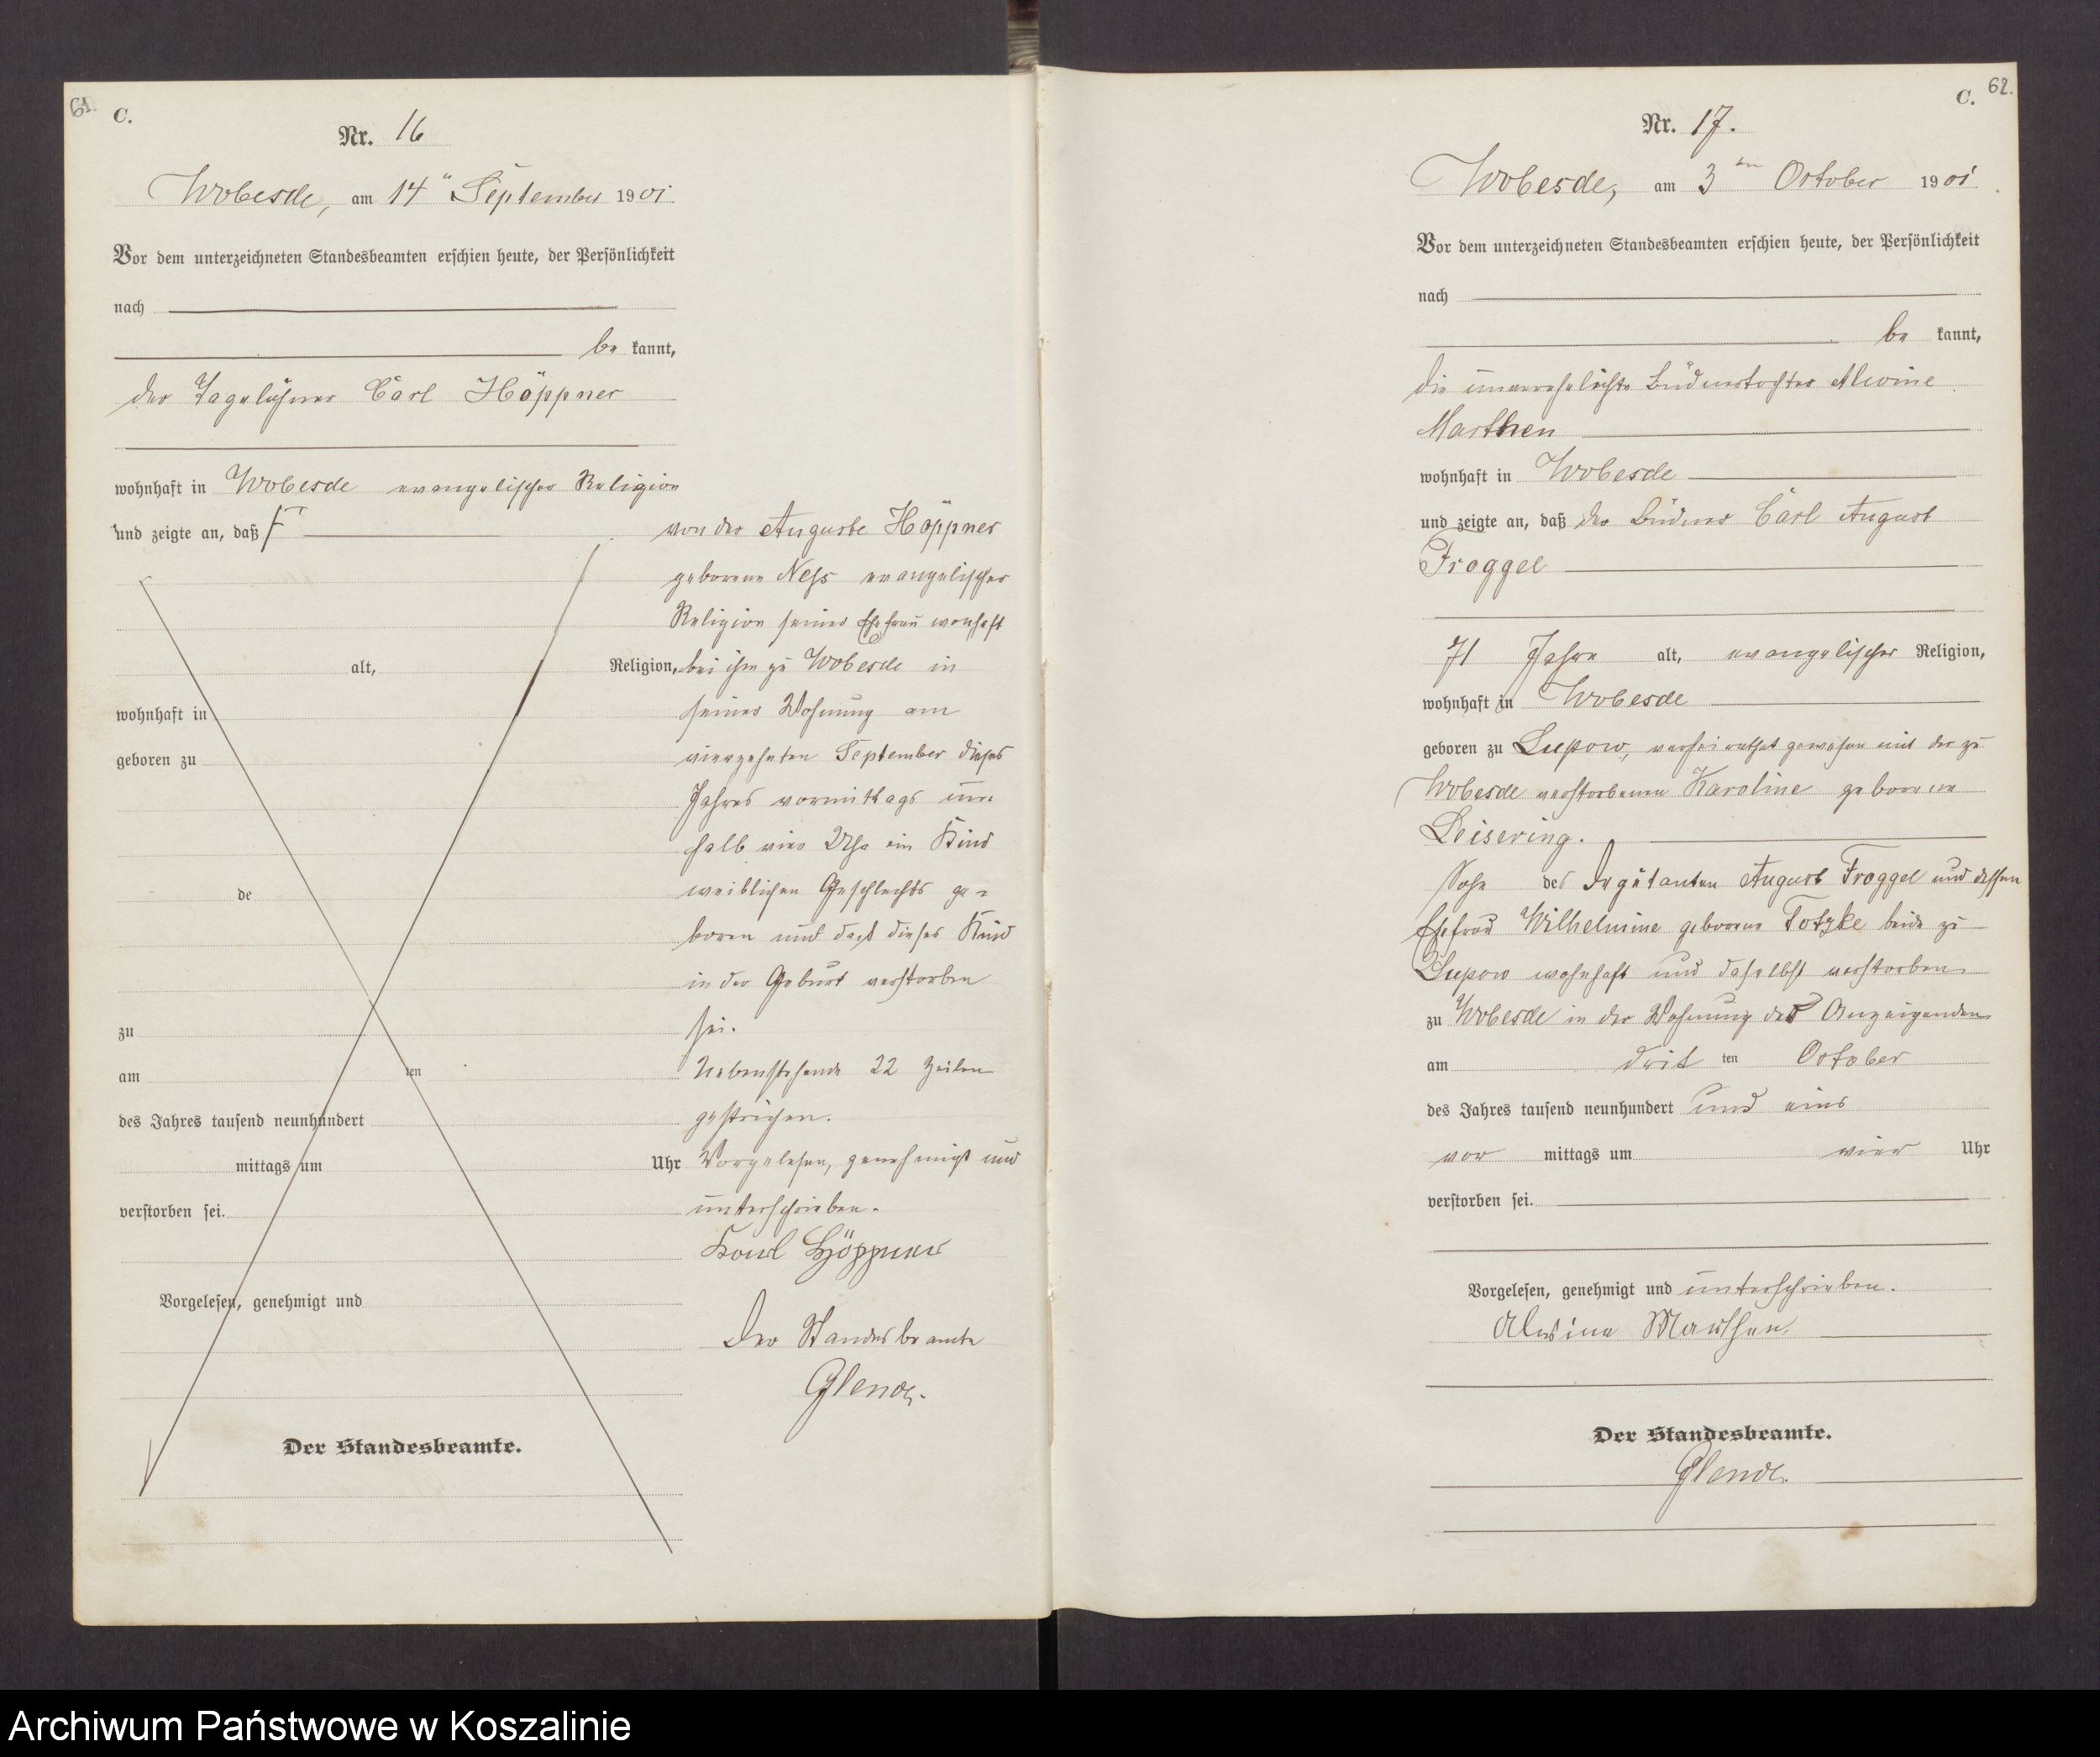 61.
C.
Nr. 16
Wobesde, am 14" September 1901.
Vor dem unterzeichneten Standesbeamten erschien heute, der Persönlichkeit
nach
be kannt,
der Tagelöhner Carl Höppner
wohnhaft in Wobesde evangelischer Religion
und zeigte an, daß
alt, Religion,
wohnhaft in
geboren zu
de
zu
am ten
des Jahres tausend neunhundert
mittags um Uhr
verstorben sei.
Vorgelesen, genehmigt und
Der Standesbeamte.
von der Auguste Höppner
geborene Neß evangelischer
Religion seiner Ehefrau wonhaft
bei ihm zu Wobesde in
seiner Wohnung am
vierzehnten September dieses
Jahres vormittags um
halb vier Uhr ein Kind
weiblichen Geschlechts ge=
boren und daß dieses Kind
in der Geburt verstorben
sei.
Nebenstehende 22 Zeilen
gestrichen.
Vorgelesen, genehmigt und
unterschrieben.
Karl Höppner
Der Standesbeamte
Glende.
C. 62.
Nr. 17.
Wobesde, am 3ten October 1901.
Vor dem unterzeichneten Standesbeamten erschien heute, der Persönlichkeit
nach
be kannt,
die unverehelichte Büdnertochter Alwine
Marthen
wohnhaft in Wobesde
und zeigte an, daß der Büdner Carl August
Froggel
71 Jahre alt, evangelischer Religion,
wohnhaft in Wobesde
geboren zu Lupow, verheirathet gewesen mit der zu
Wobesde verstorbenen Karoline geborene
Leisering.
Sohn des Deputanten August Froggel und dessen
Ehefrau Wilhelmine geborene Totzke beide zu
Lupow wohnhaft und daselbst verstorben
zu Wobesde in der Wohnung der Anzeigenden
am drit ten October
des Jahres tausend neunhundert und eins
vor mittags um vier Uhr
verstorben sei.
Vorgelesen, genehmigt und unterschrieben.
Alwine Marthen.
Der Standesbeamte.
Glende.
Archiwum Państwowe w Koszalinie